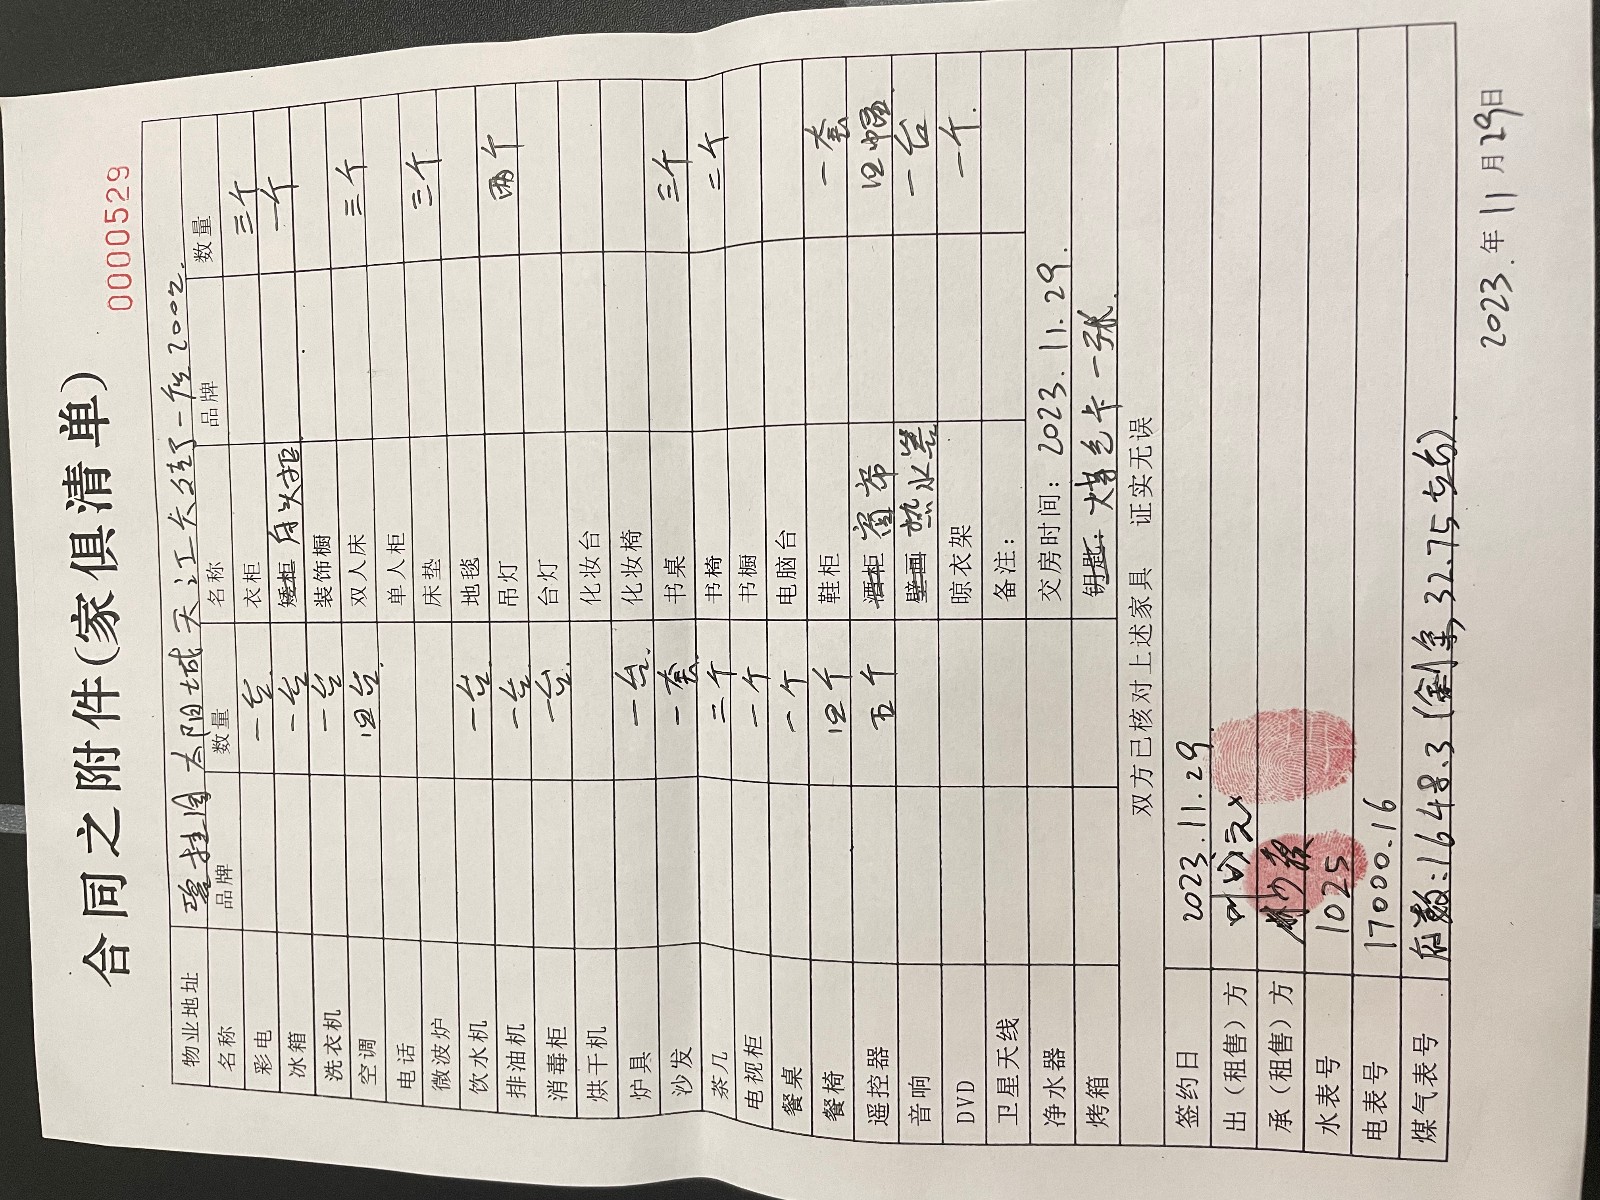 合同之附件(家俱清单)
0000529
物业地址 碧桂园太阳城天江 一座2002.
名称 品牌 数量 名称 品牌 数量
彩电 一台 衣柜 三个
冰箱 一台 矮柜 床头柜 一个
洗衣机 一台 装饰橱
空调 四台 双人床 三个
电话 单人柜
微波炉 床垫 三个
饮水机 一台 地毯
排油机 一台 吊灯 两个
消毒柜 一台 台灯
烘干机 化妆台
炉具 一台 化妆椅
沙发 一套 书桌 三个
茶几 二个 书椅 二个
电视柜 一个 书橱
餐桌 一个 电脑台
餐椅 四个 鞋柜 一套
遥控器 五个 酒柜 窗帘 四幅
音响 壁画 热水器 一台
DVD 晾衣架 一个.
卫星天线 备注:
净水器 交房时间: 2023.11.29.
烤箱 钥匙: 煤气卡一张.
双方已核对上述家具 证实无误
签约日 2023.11.29.
出(租售)方
承(租售)方
水表号 1025
电表号 17000.16
煤气表号 底数:1648.3(剩余,32.75方).
2023.年11月29日